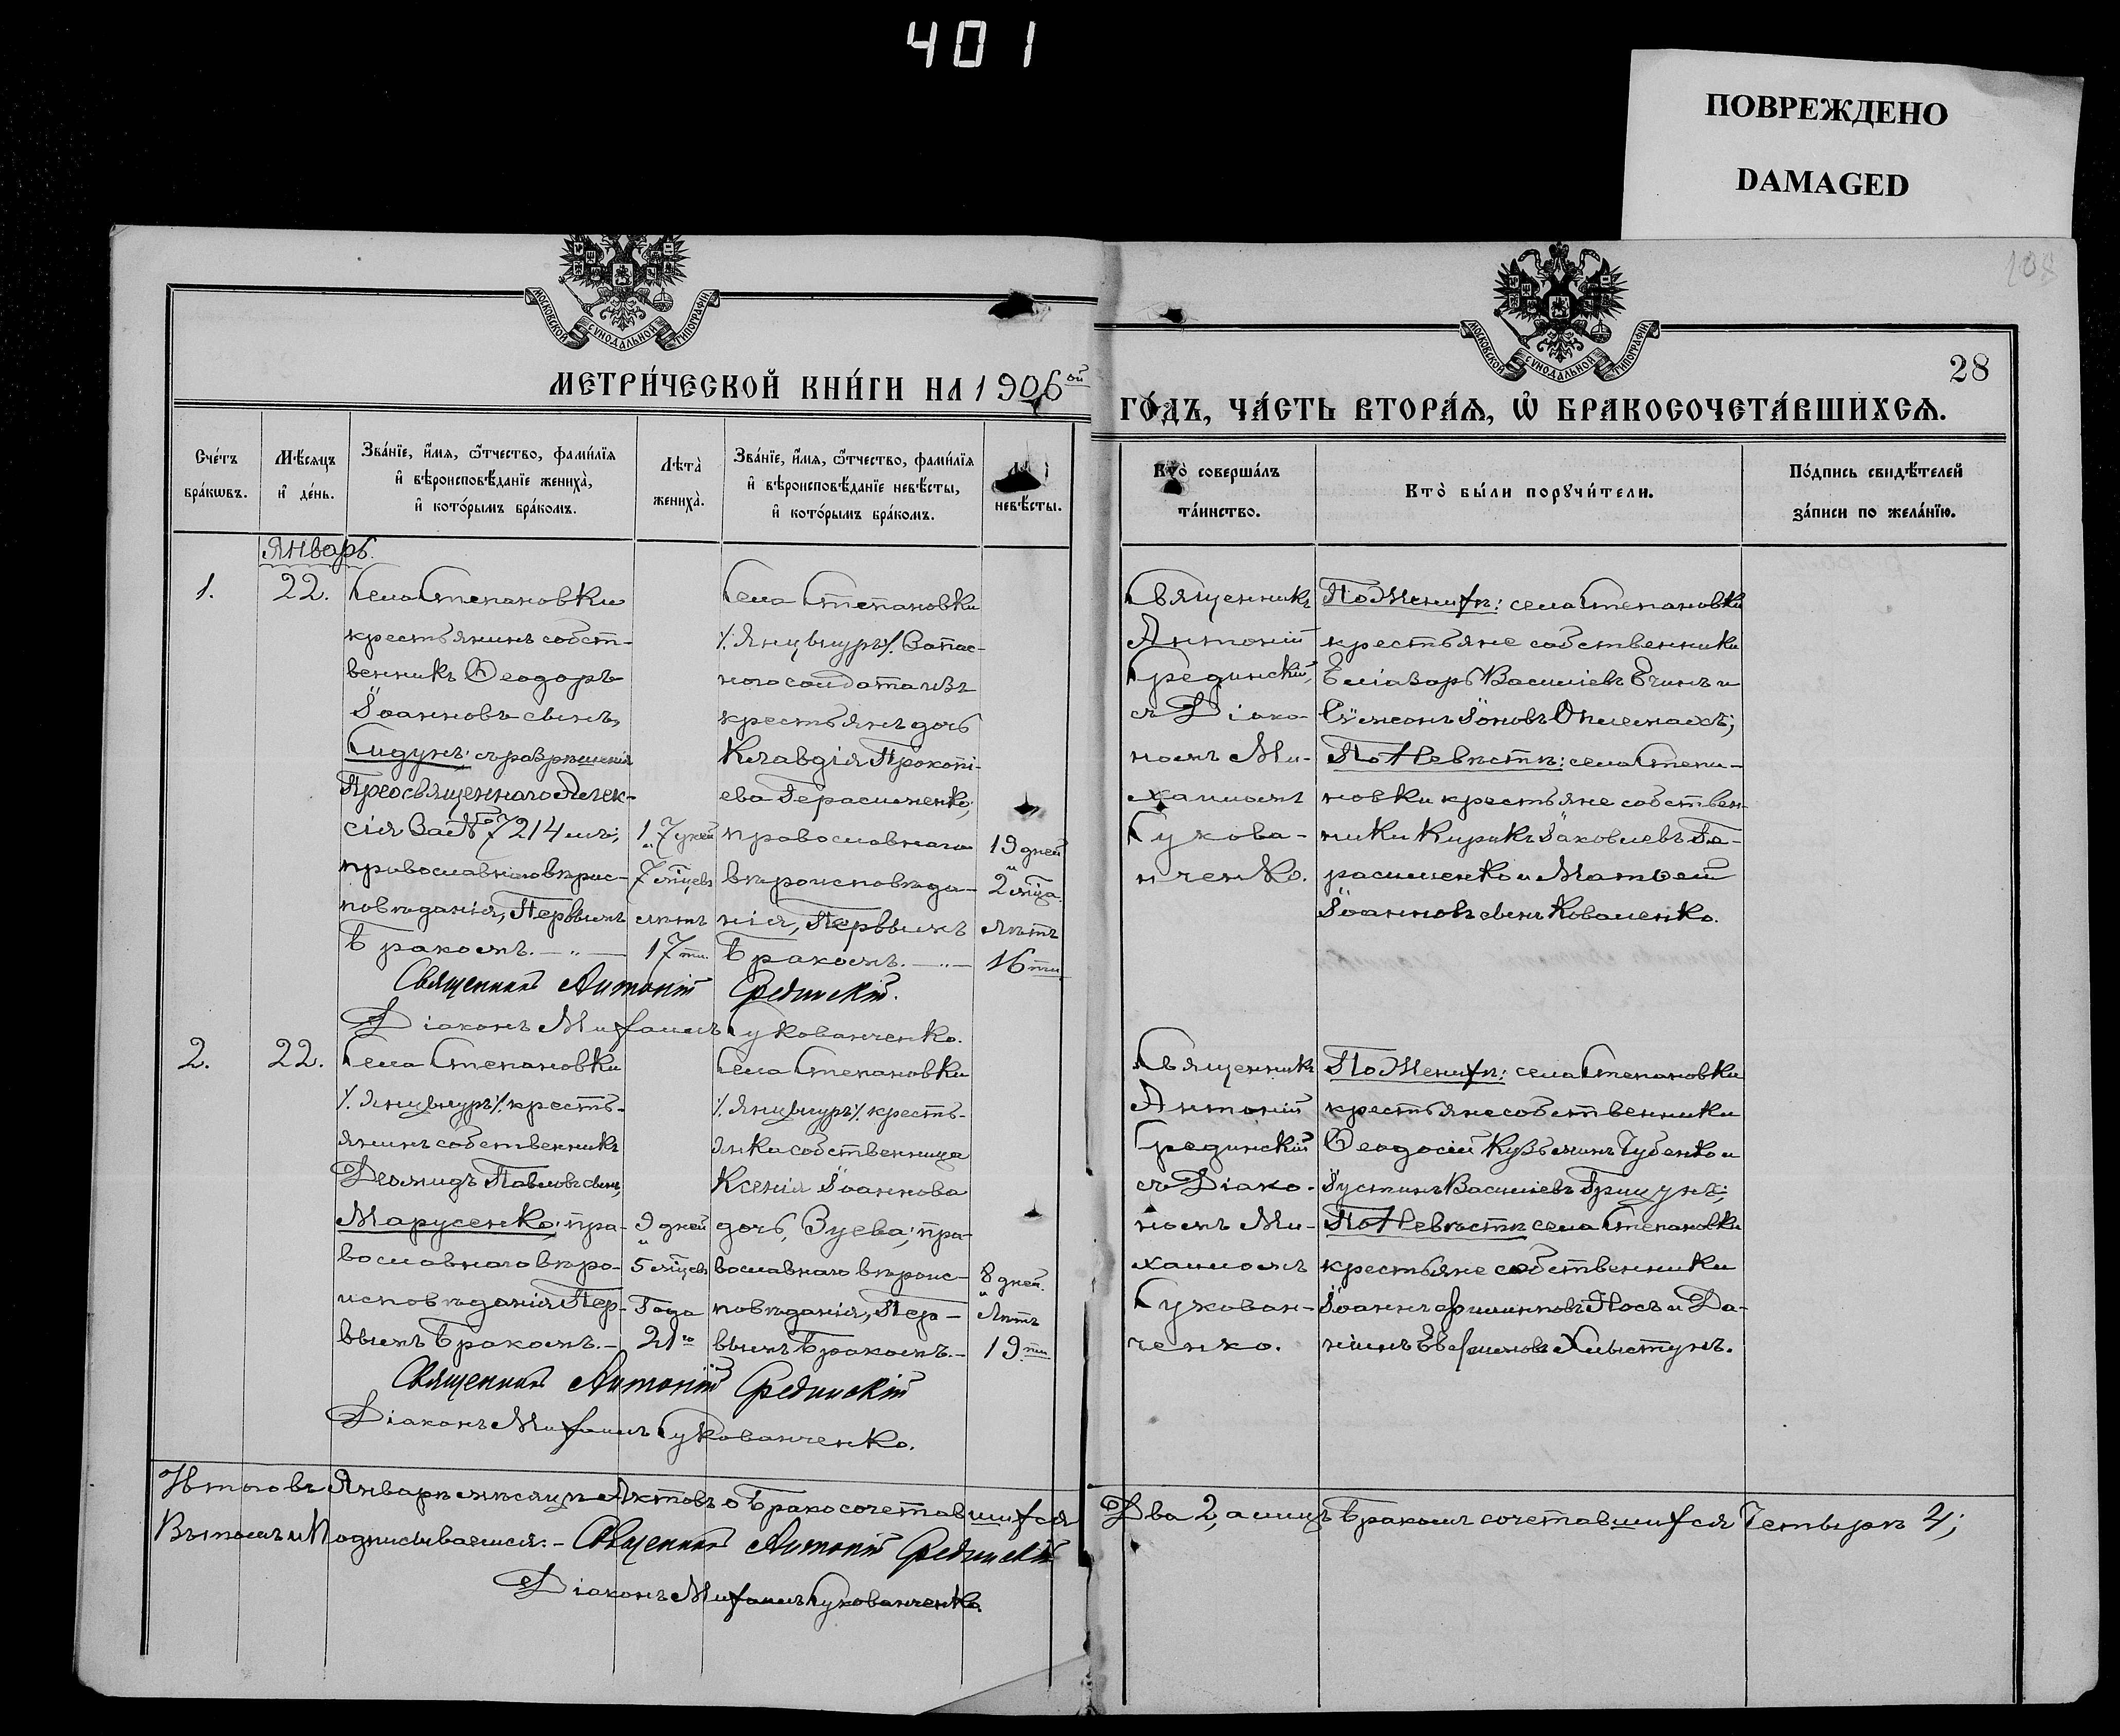 401
ПОВРЕЖДЕНО
DAMAGED
108
МОСКОВСКОЙ СѴНОДАЛЬНОЙ ТИПОГРАФІИ
МОСКОВСКОЙ СѴНОДАЛЬНОЙ ТИПОГРАФІИ
28
МЕТРИ́ЧЕСКОЙ КНИ́ГИ НА 1906 ой
ГО́ДЪ, ЧА́СТЬ ВТОРА́Ѧ, Ѽ БРАКОСОЧЕТА́ВШИХСѦ.
Сче́тъ
бра́кѡвъ.
Мѣ́сяцъ
и҆ де́нь.
Зва́нїе, и҆́мя, ѻ҆́тчество, фами́лїя
и҆ вѣроисповѣ́данїе жениха̀,
и҆ кото́рымъ бра́комъ.
Лѣта̀
жениха̀.
Зва́нїе, и҆́мя, ѻ҆́тчество, фами́лїя
и҆ вѣроисповѣ́данїе невѣ́сты,
и҆ кото́рымъ бра́комъ.
невѣ́сты.
Кто̀ соверша́лъ
та́инство.
Кто̀ бы́ли порꙋчи́тели.
По́дпись свидѣ́телей
за́писи по жела́нїю.
Январь.
1.
22.
Села Степановки
крестьянинъ собст-
венникъ Ѳеодоръ
Іоанновъ сынъ,
Сидунъ: съ разрѣшенія
Преосвященнаго Алек-
сія За № 7214 мъ;
православнаго вѣрис-
повѣданія, Первымъ
бракомъ. — „ —
17 дней
7 мѣцевъ
лѣтъ
17 ти.
Села Степановки
/. Янцыцуръ ./. Запас-
ного солдата изъ
крестьянъ дочь
Клавдія Прокопі-
ева Герасименко,
православнаго
вѣроисповѣда-
нія, Первымъ
бракомъ. — „ —
19 дней
2 мѣца.
лѣтъ
16 ти
Священникъ
Антоній
Срединскій,
съ Діако-
номъ Ми-
хаиломъ
Сукова-
нченко.
По Женихѣ: села Степановки
крестьяне собственники
Еліазаръ Василіевъ Ечинъ и
Сѵмеонъ Іоновъ Опеленахъ;
По Невѣстѣ: села Степа-
новки крестьяне собствен-
ники Кирикъ Іаковлевъ Ге-
расименко и Матѳей
Іоанновъ сынъ Коваленко.
Священникъ Антоній Срединскій.
Діаконъ Михаилъ Сукованченко.
2.
22.
Села Степановки
/. Янцыцуръ ./. кресть-
янинъ собственникъ
Деомидъ Павловъ сынъ,
Марусенко; пра-
вославнаго вѣро-
исповѣданія Пер-
вымъ бракомъ. —
9 дней
5 мѣцевъ
Года
21 го
Села Степановки
/. Янцыцуръ ./. кресть-
янка собственница
Ксенія Іоаннова
дочь, Зуева; пра-
вославнаго вѣроис-
повѣданія, Пер-
вымъ бракомъ. —
8 дней.
лѣтъ
19 ти
Священникъ
Антоній
Срединскій
съ Діако-
номъ Ми-
хаиломъ
Сукован-
ченко.
По Женихѣ: села Степановки
крестьяне собственники
Ѳеодосій Кузьминъ Губенко и
Іустинъ Василіевъ Грицунъ;
По Невѣстѣ села Степановки
крестьяне собственники
Іоаннъ Филипповъ Носъ и Да-
ніилъ Евфимовъ Хлыстунъ.
Священникъ Антоній Срединскій
Діаконъ Михаилъ Сукованченко.
Итого въ Январѣ мѣсяцѣ Актовъ о Бракосочетавшихся Два 2, а лицъ Бракомъ сочетавшихся Четыре 4;
Въ томъ и Подписываемся: — Священникъ Антоній Срединскій
Діаконъ Михаилъ Сукованченко.